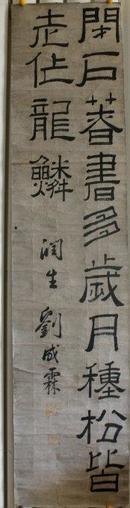 閉戶著書多歲月種松皆
老作龍鱗
潤生 劉成霖